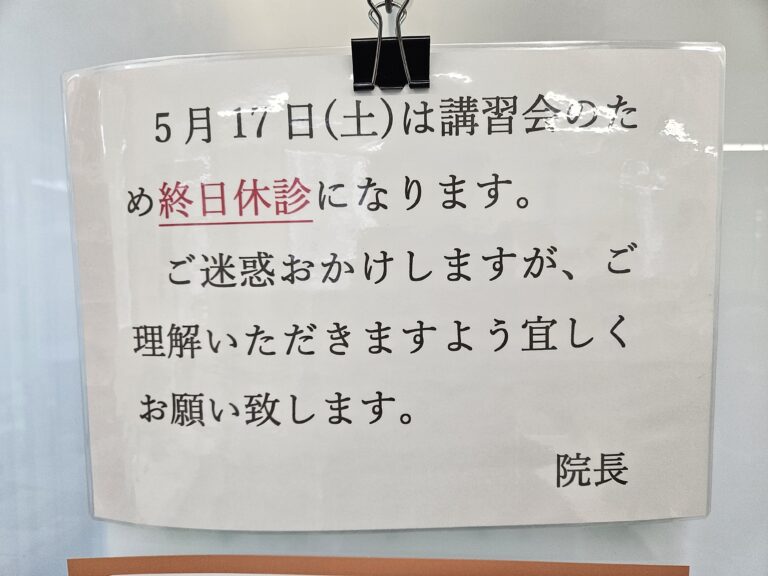 5月17日(土)は講習会のた
め終日休診になります。
ご迷惑おかけしますが、ご
理解いただきますよう宜しく
お願い致します。
院長